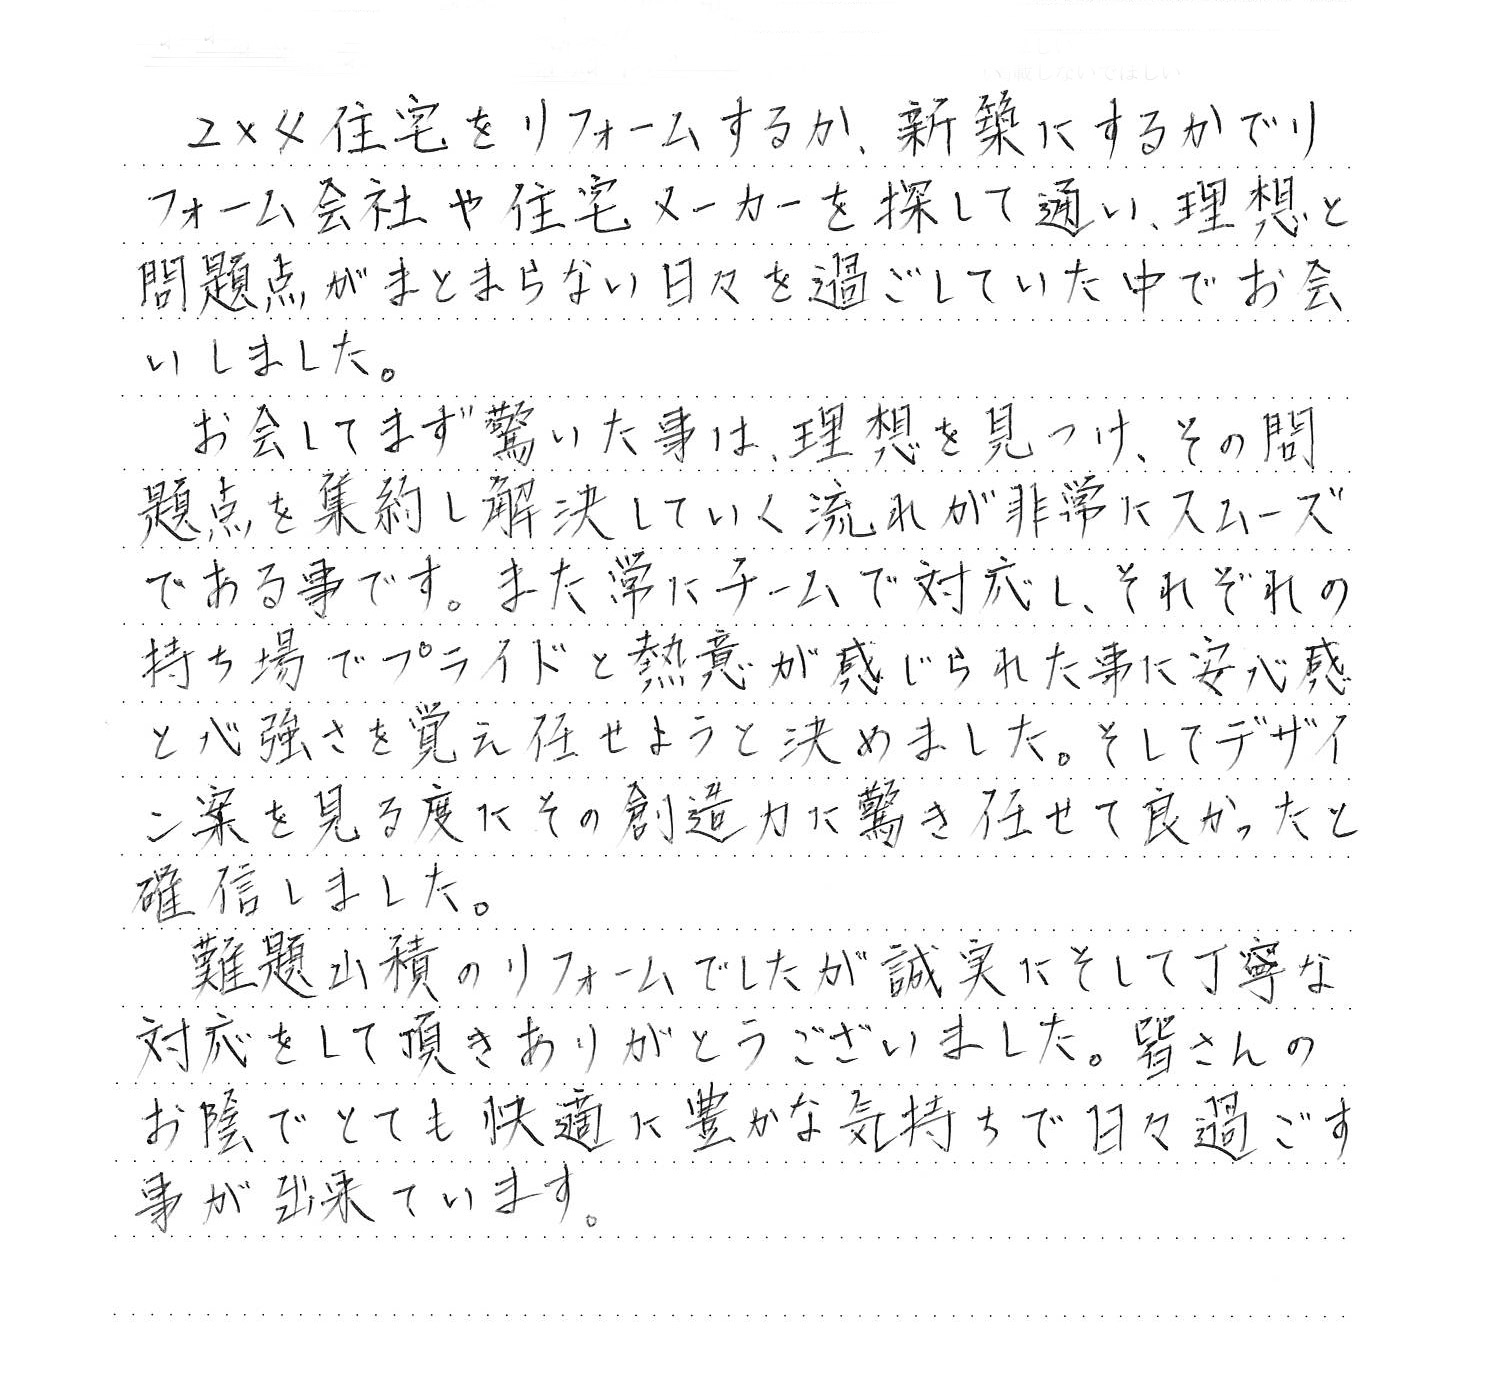 2×4住宅をリフォームするか、新築にするかでリ
フォーム会社や住宅メーカーを探して通い、理想と
問題点がまとまらない日々を過ごしていた中でお会
いしました。
お会してまず驚いた事は、理想を見つけ、その問
題点を集約し解決していく流れが非常にスムーズ
である事です。また常にチームで対応し、それぞれの
持ち場でプライドと熱意が感じられた事に安心感
と心強さを覚え任せようと決めました。そしてデザイ
ン案を見る度にその創造力に驚き任せて良かったと
確信しました。
難題山積のリフォームでしたが誠実にそして丁寧な
対応をして頂きありがとうございました。皆さんの
お陰でとても快適に豊かな気持ちで日々過ごす
事が出来ています。